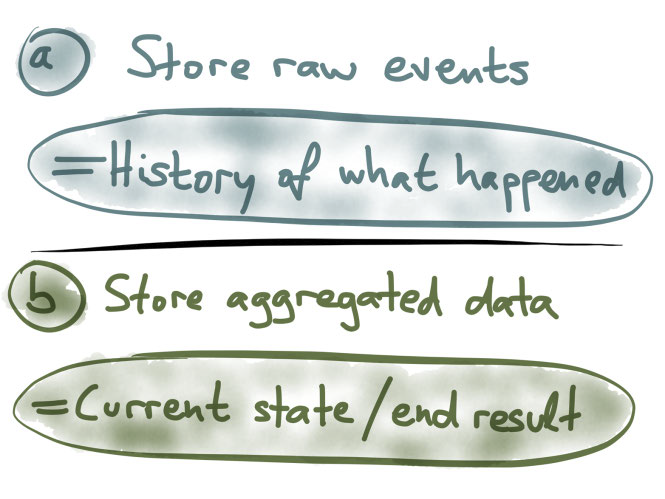 a Store raw events
=History of what happened
b Store aggregated data
=Current state/end result